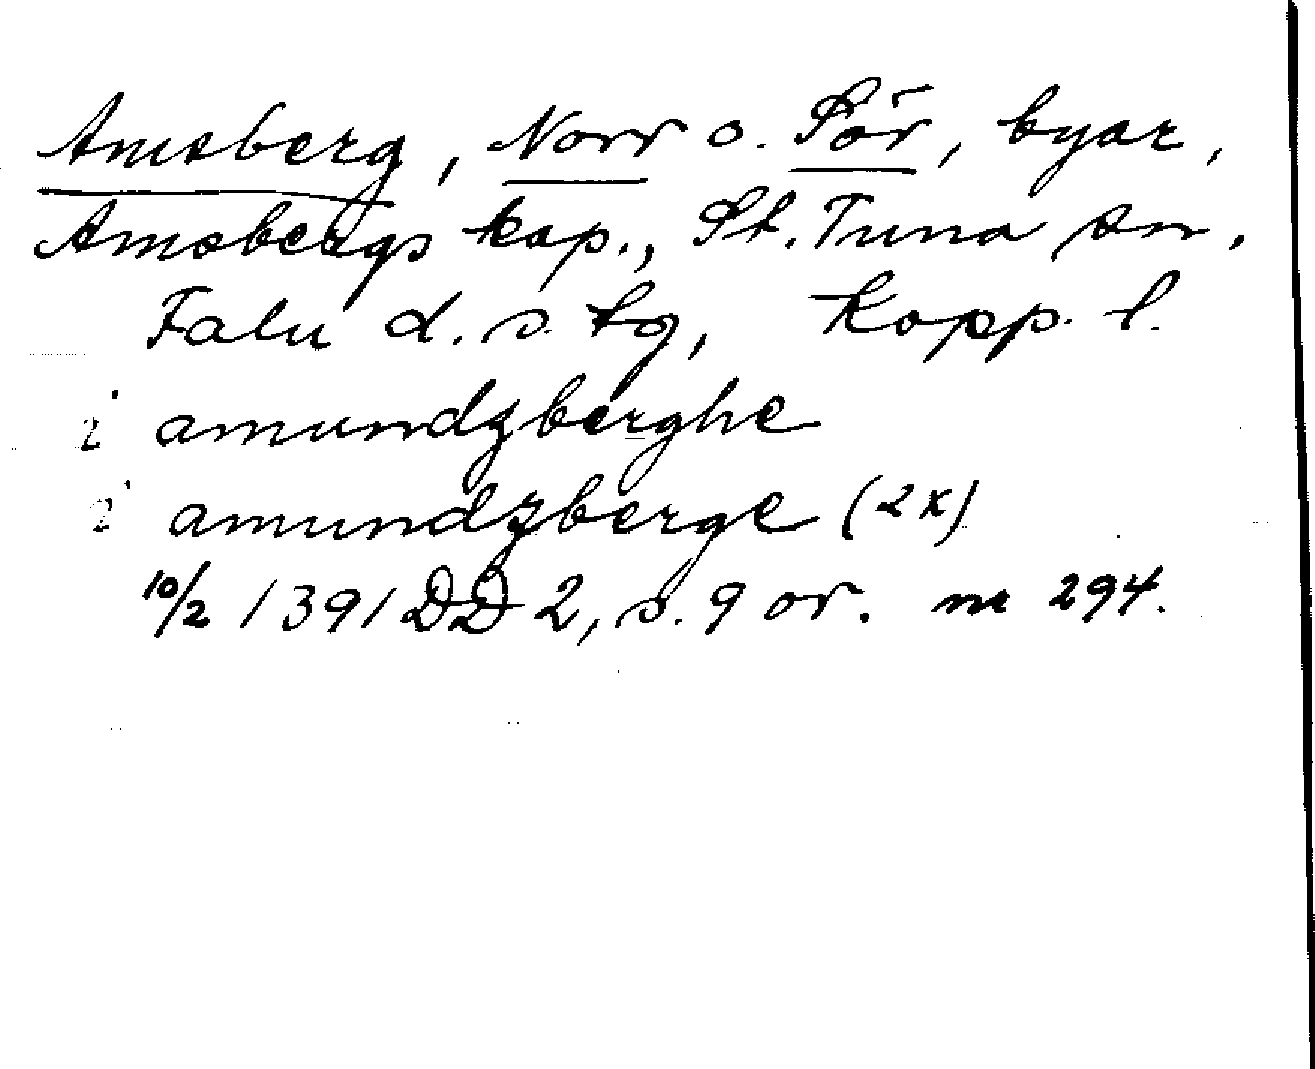 Amsberg, Norr o. Sör, byar,
Amsbergs kap., St. Tuna sn,
Falu d. s. fg, Kopp. l.
i amundzberghe
i amundzberge (2x)
10/2 1391 DD 2, s. 9 or. nr 294.